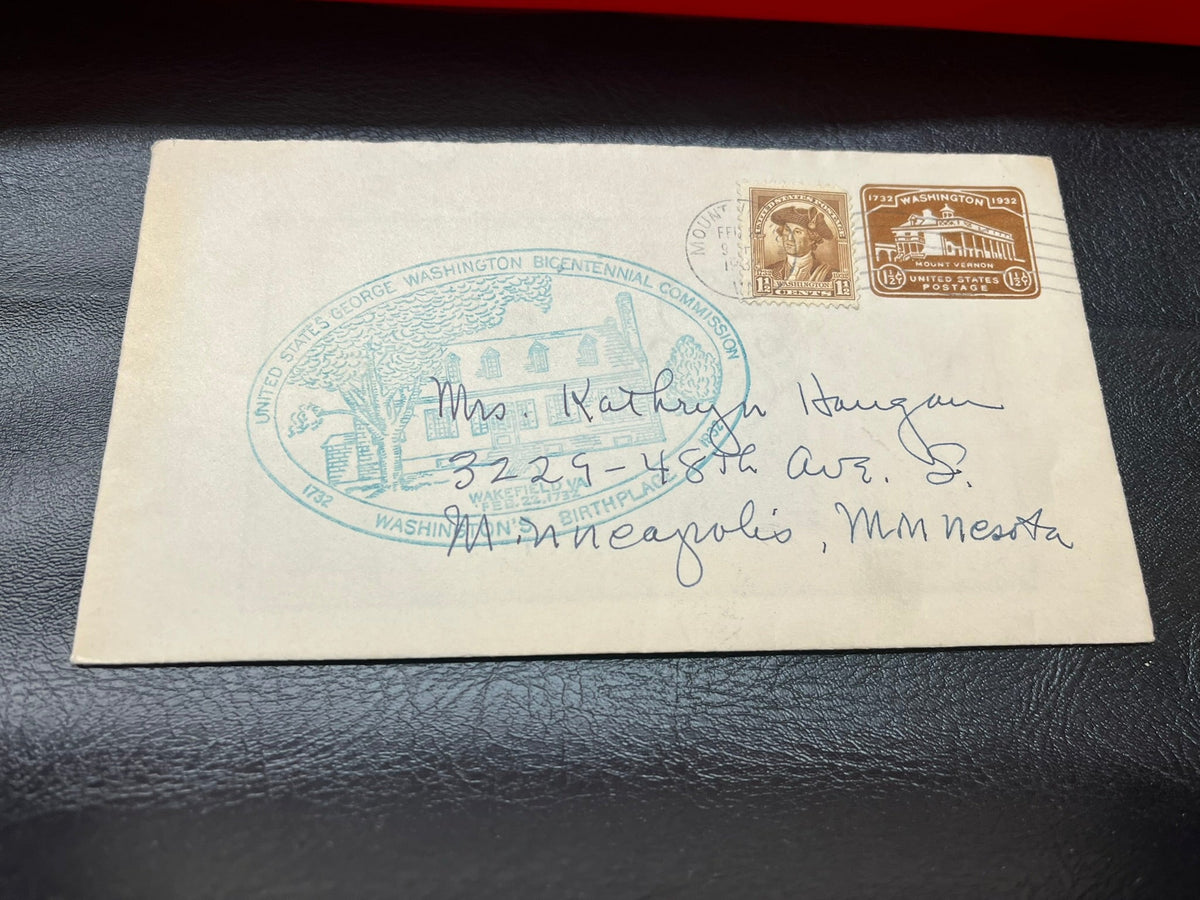 UNITED STATES GEORGE WASHINGTON BICENTENNIAL COMMISSION
WAKEFIELD, VA.
FEB. 22, 1732
1732 WASHINGTON'S BIRTHPLACE
MOUNT
FEB
UNITED STATES POSTAGE
WASHINGTON
1½ CENTS 1½
1732 WASHINGTON 1932
MOUNT VERNON
1½¢ UNITED STATES POSTAGE 1½¢
Mrs. Kathryn Haugan
3229-48th Ave. S.
Minneapolis, Minnesota